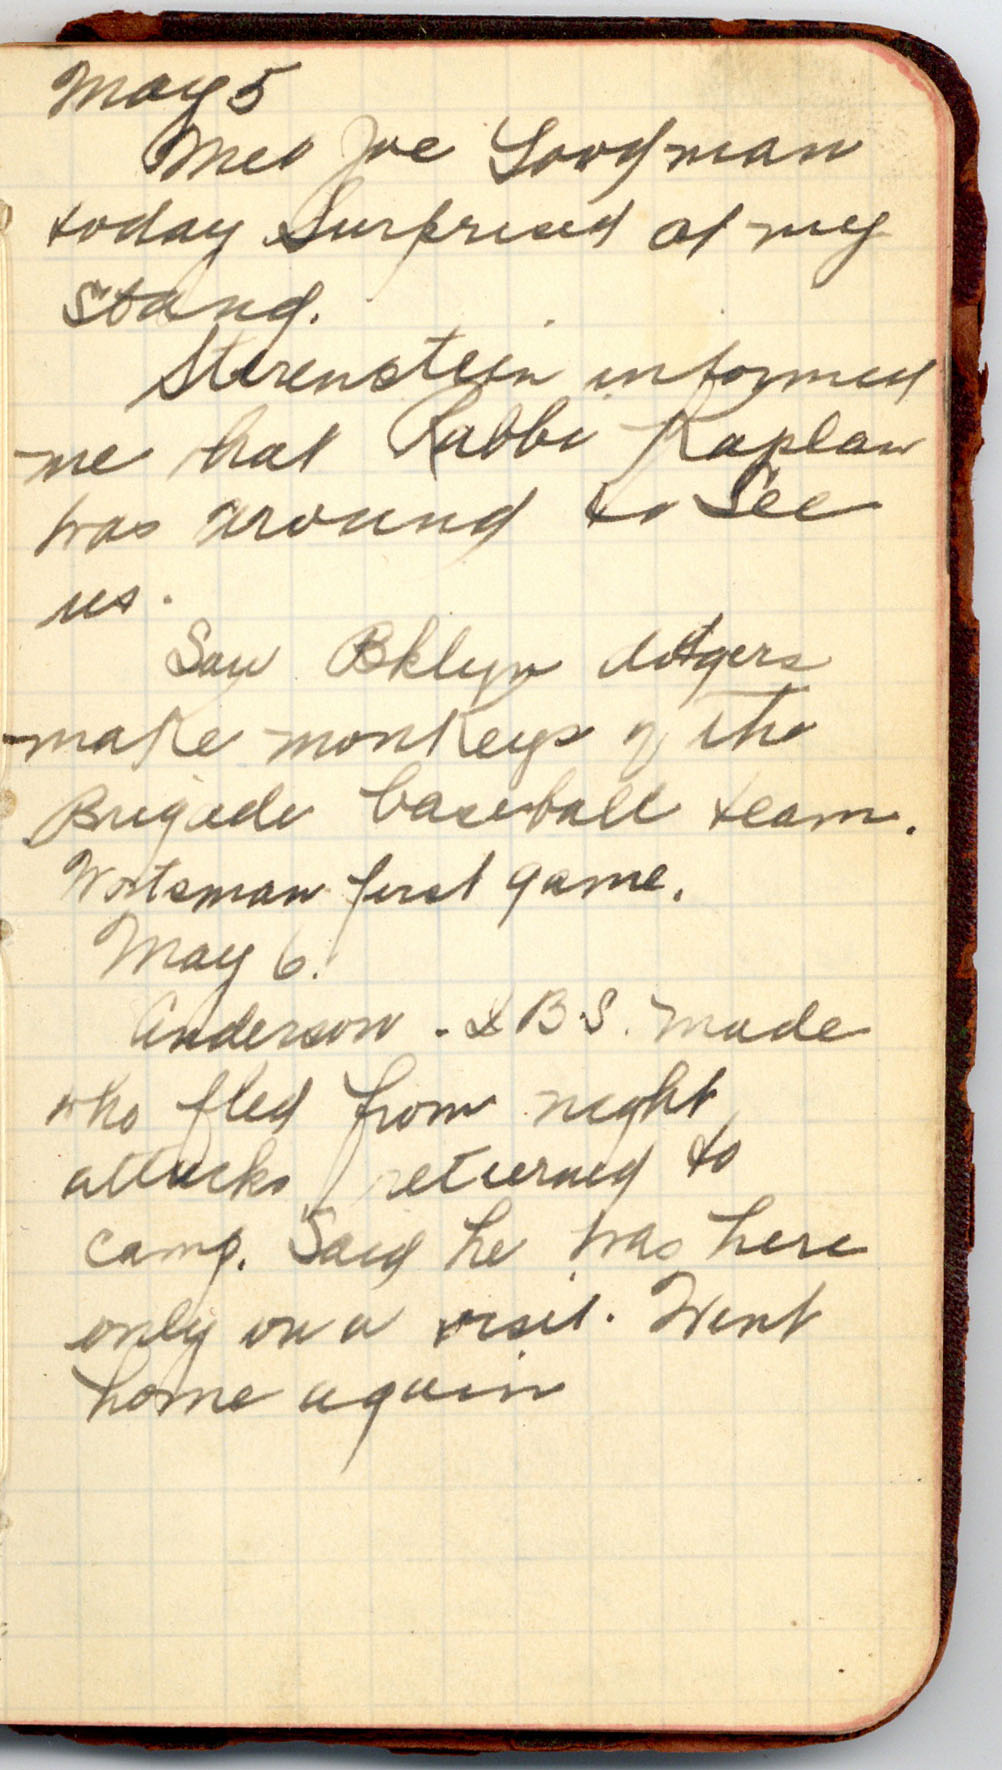 May 5
Met Joe Goodman
today Surprised at my
stand.
Sterenstein informed
me that Rabbi Kaplan
was around to See
us.
Saw Bklyn dodgers
make monkeys of the
Brigade baseball team.
Wortsman first game.
May 6.
Anderson - & B.S. made
who fled from night
attacks returned to
camp. Said he was here
only on a visit. Went
home again